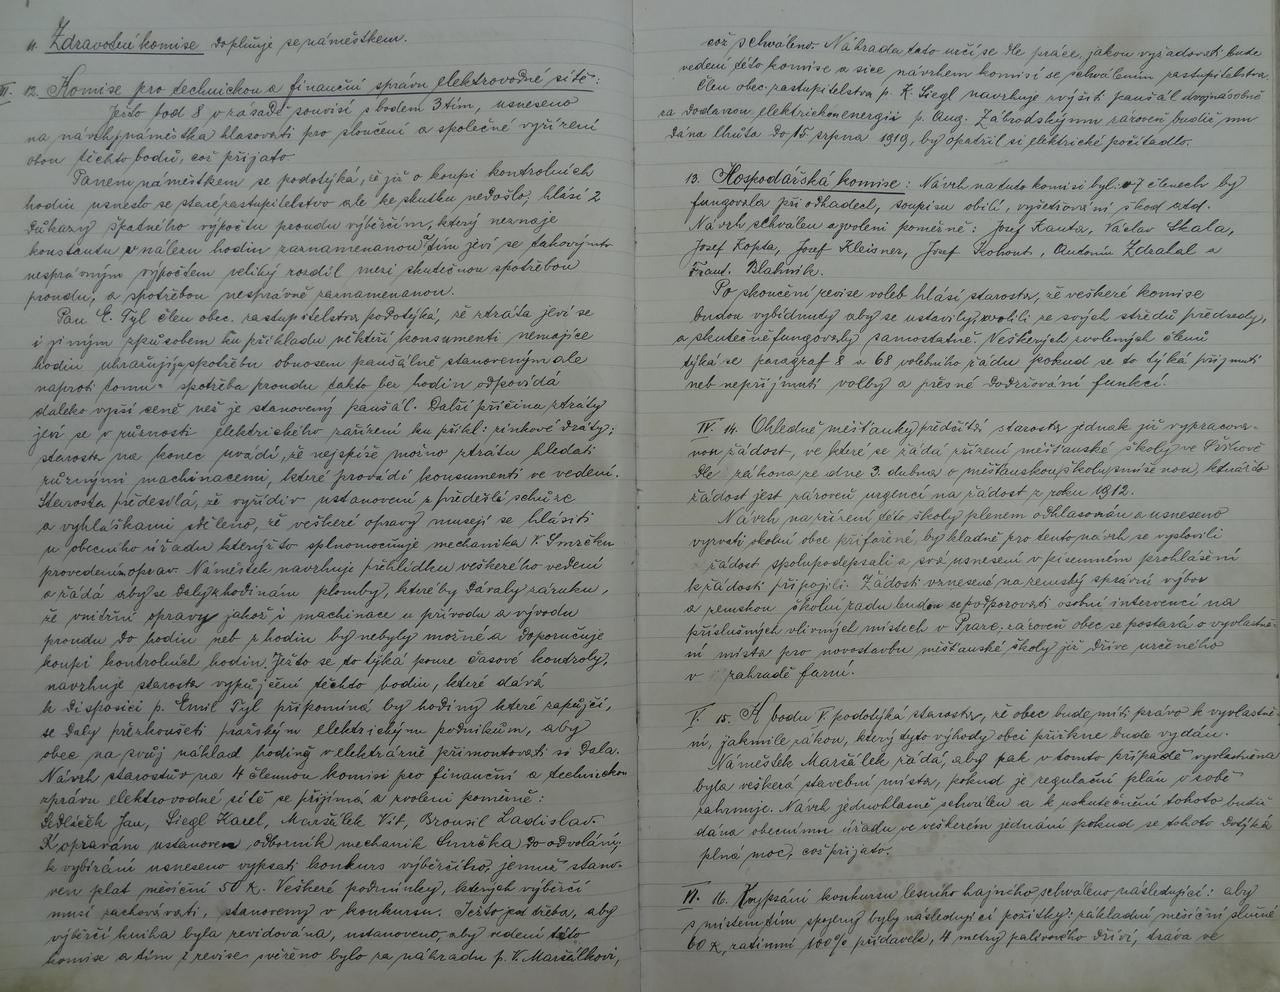 11. Zdravotní komise doplňuje se náměstkem.
III. 12. Komise pro technickou a finanční správu elektrovodné sítě:
Ježto bod 8 v zásadě souvisí s bodem 3tím, usneseno
na návrh p. náměstka hlasovati pro sloučení a společné vyřízení
obou těchto bodů, což přijato.
Panem náměstkem se podotýká, že již o koupi kontrolních
hodin usneslo se staré zastupitelstvo ale ke skutku nedošlo, hlásí 2
důkazy špatného výpočtu proudu výběrčím, který neznaje
konstantu v nálezu hodin zaznamenanou tím jeví se takovýmto
nesprávným výpočtem veliký rozdíl mezi skutečnou spotřebou
proudu, a spotřebou nesprávně zaznamenanou.
Pan E. Tyl člen obec. zastupitelstva podotýká, že ztráta jeví se
i jiným způsobem ku příkladu někteří konsumenti nemajíce
hodin uhražují spotřebu obnosem paušálně stanoveným ale
naproti tomu spotřeba proudu takto bez hodin odpovídá
daleko vyšší ceně než je stanovený paušál. Další příčina ztráty
jeví se v různosti elektrického zařízení ku příkl: zinkové dráty;
starosta na konec uvádí, že nejspíše možno ztrátu hledati
různými machinacemi, které provádí konsumenti ve vedení.
Starosta předesílá, že vyřídiv ustanovení z předešlé schůze
a vyhláškami sděleno, že veškeré opravy musejí se hlásiti
u obecního úřadu kterýžto splnomocňuje mechanika V. Smrčku
provedením oprav. Náměstek navrhuje přehlídku veškerého vedení
a žádá aby se daly k hodinám plomby, které by dávaly záruku,
že vnitřní opravy jakož i machinace u přívodu a vývodu
proudu do hodin neb z hodin by nebyly možné a doporučuje
koupi kontrolních hodin. Ježto se to týká pouze časové kontroly,
navrhuje starosta vypůjčení těchto hodin, které dává
k disposici p. Emil Tyl připomíná by hodiny které zapůjčí,
se daly přezkoušeti pražským elektrickým podnikům, aby
obec na svůj náklad hodiny v elektrárně přimontovati si dala.
Návrh starostův na 4 člennou komisi pro finanční a technickou
zprávu elektrovodné sítě se přijímá a zvoleni poměrně:
Sedláček Jan, Siegl Karel, Maršálek Vít, Brousil Ladislav.
K opravám ustanoven odborník mechanik Smrčka do odvolání,
k vybírání usneseno vypsati konkurs výběrčího, jemuž stano-
ven plat měsíční 50 K. Veškeré podmínky, kterých výběrčí
musí zachovávati, stanoveny v konkursu. Ježto jest třeba, aby
výběrčí kniha byla revidována, ustanoveno, aby vedení této
komise a tím i revise svěřeno bylo za náhradu p. V. Maršálkovi,
což schváleno. Náhrada tato určí se dle práce, jakou vyžadovati bude
vedení této komise a sice návrhem komisí se schválením zastupitelstva.
Člen obec. zastupitelstva p. K. Siegl navrhuje zvýšiti paušál dvojnásobně
za dodanou elektrickou energii p. Aug. Záhrodským zároveň budiž mu
dána lhůta do 15. srpna 1919, by opatřil si elektrické počítadlo.
13. Hospodářská komise: Návrh na tuto komisi byl: o 7 členech by
fungovala při odhadech, soupisu obilí, vyšetřování škod atd.
Návrh schválen a zvoleni poměrně: Josef Kauta, Václav Skala,
Josef Kopta, Josef Kleisner, Josef Kohout, Antonín Zdrahal a
Frant. Blahník.
Po skončení revise voleb hlásí starosta, že veškeré komise
budou vybídnuty aby se ustavily, zvolili ze svých středů předsedy,
a skutečně fungovaly samostatně. Veškerých zvolených členů
týká se paragraf 8 a 68 volebního řádu pokud se to týká přijmutí
neb nepřijmutí volby a přesné dodržování funkcí.
IV. 14. Ohledně měšťanky předčítá starosta jednak již vypracova-
nou žádost, ve které se žádá zřízení měšťanské školy ve
dle zákona ze dne 3. dubna o měšťanskou školu smíšenou, kterážto
žádost jest zároveň urgencí na žádost z roku 1912.
Návrh na zřízení této školy plenem odhlasován a usneseno
vyzvati školní obce přiřařené, by kladně pro tento návrh se vyslovili
žádost spolupodepsali a svá usnesení v písemném prohlášení
k žádosti připojili. Žádosti vznesené na zemský správní výbor
a zemskou školní radu budou se podporovati osobní intervencí na
příslušných vlivných místech v Praze; zároveň obec se postará o vyvlastně-
ní místa pro novostavbu měšťanské školy již dříve určeného
v zahradě farní.
V. 15. K bodu V. podotýká starosta, že obec bude míti právo k vyvlastně-
ní, jakmile zákon, který tyto výhody obci přiřkne bude vydán.
Náměstek Maršálek žádá, aby pak v tomto případě vyvlastněna
byla veškerá stavební místa, pokud je regulační plán v sobě
zahrnuje. Návrh jednohlasně schválen a k uskutečnění tohoto budiž
dána obecnímu úřadu ve veškerém jednání pokud se tohoto dotýká
plná moc, což přijato.
VI. 16. Vypsání konkursu lesního hajného schváleno následující: aby
s místem tím spojeny byly následující požitky: základní měsíční služné
60 K, zatímní 100% přídavek, 4 metry palivového dříví, tráva ve